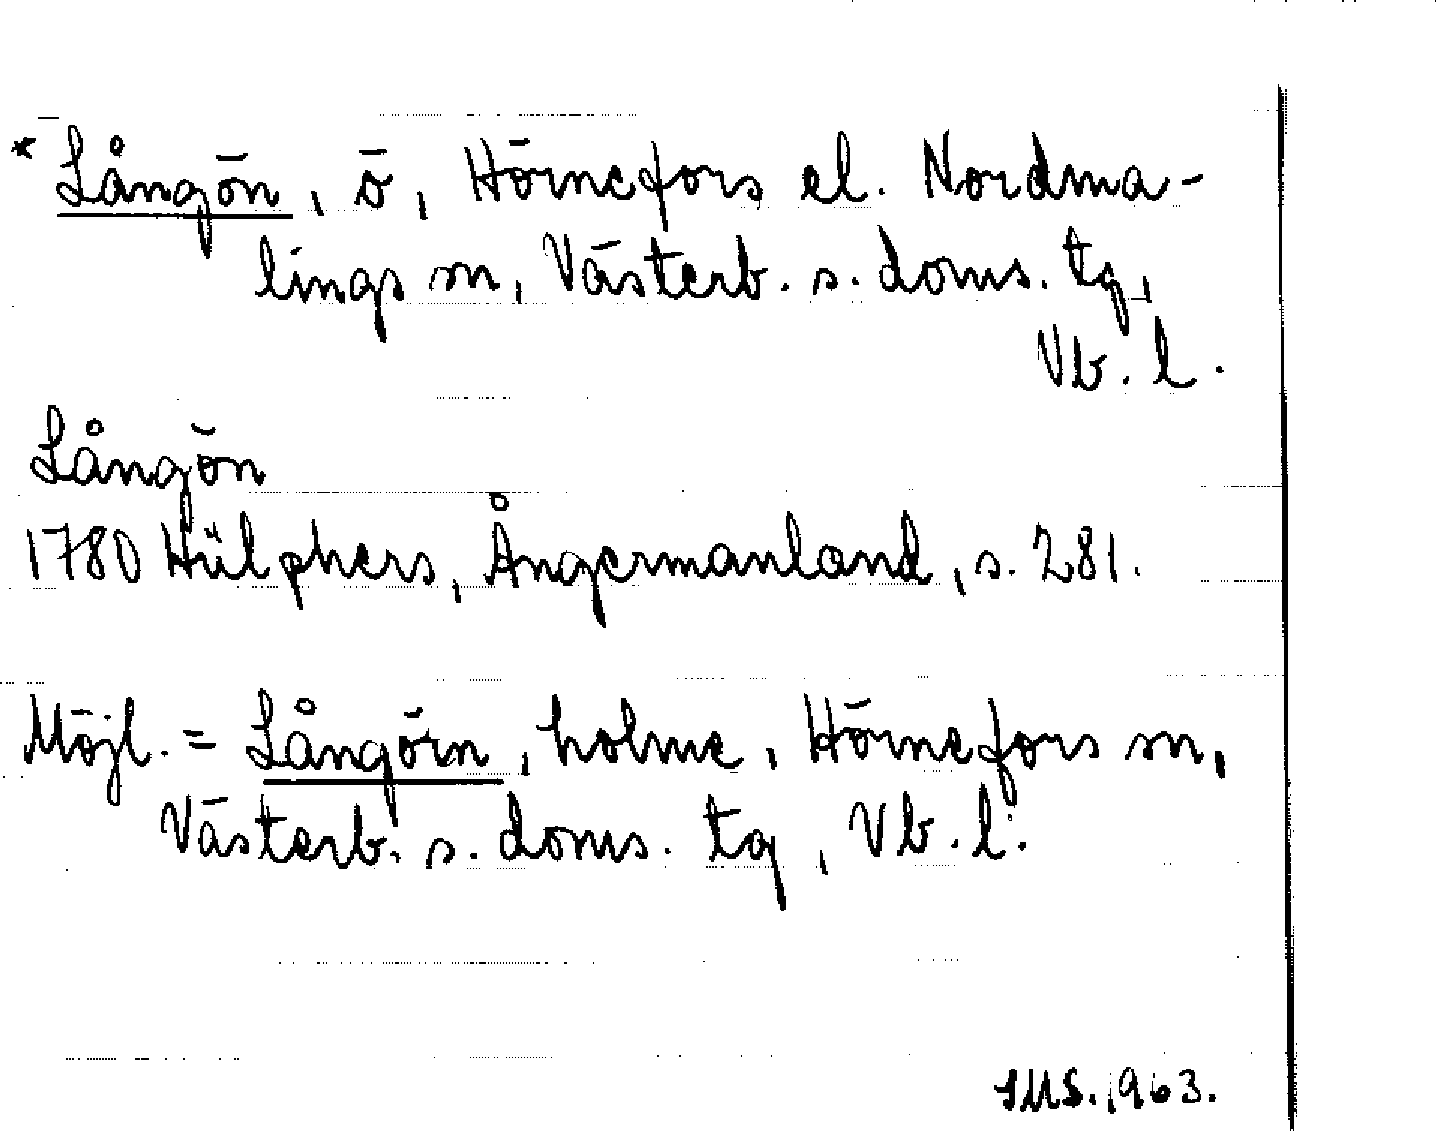 * Långön, ö, Hörnefors el. Nordma-
lings sn, Västerb. s. doms. tg,
Vb. l.
Långön
1780 Hülphers, Ångermanland, s. 281.
Möjl. = Långörn, holme, Hörnefors sn,
Västerb. s. doms. tg, Vb. l.
1963.